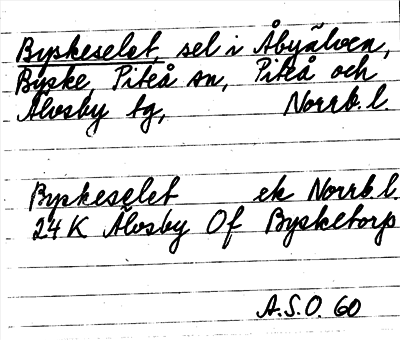 Byskeselet, sel i Åbyälven,
Byske, Piteå sn, Piteå och
Älvsby tg, Norrb. l.
Byskeselet ek Norrb. l.
24 K Älvsby Of Bysketorp
A.S.O. 60